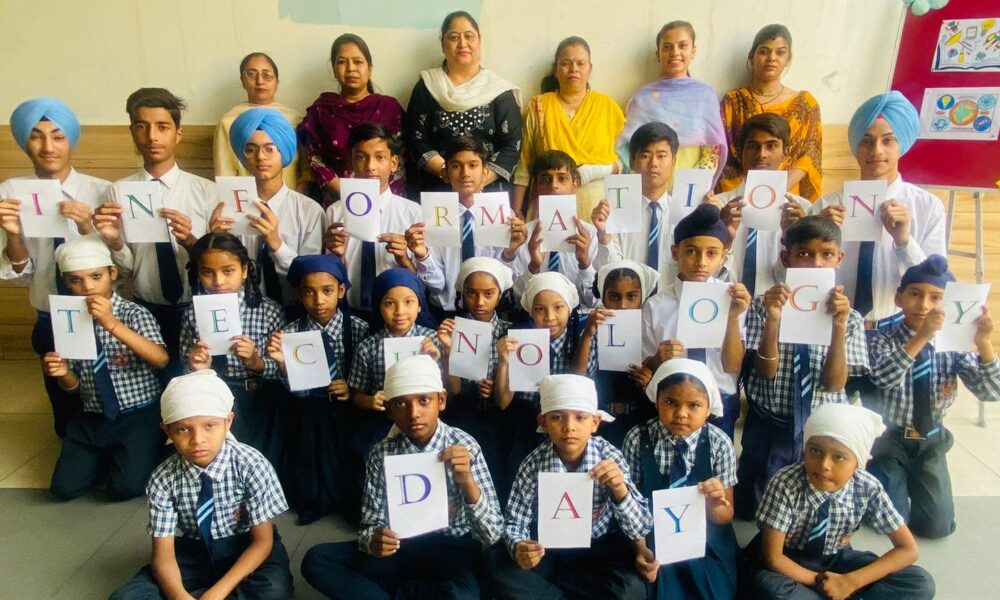 INFORMATION
TECHNOLOGY
DAY